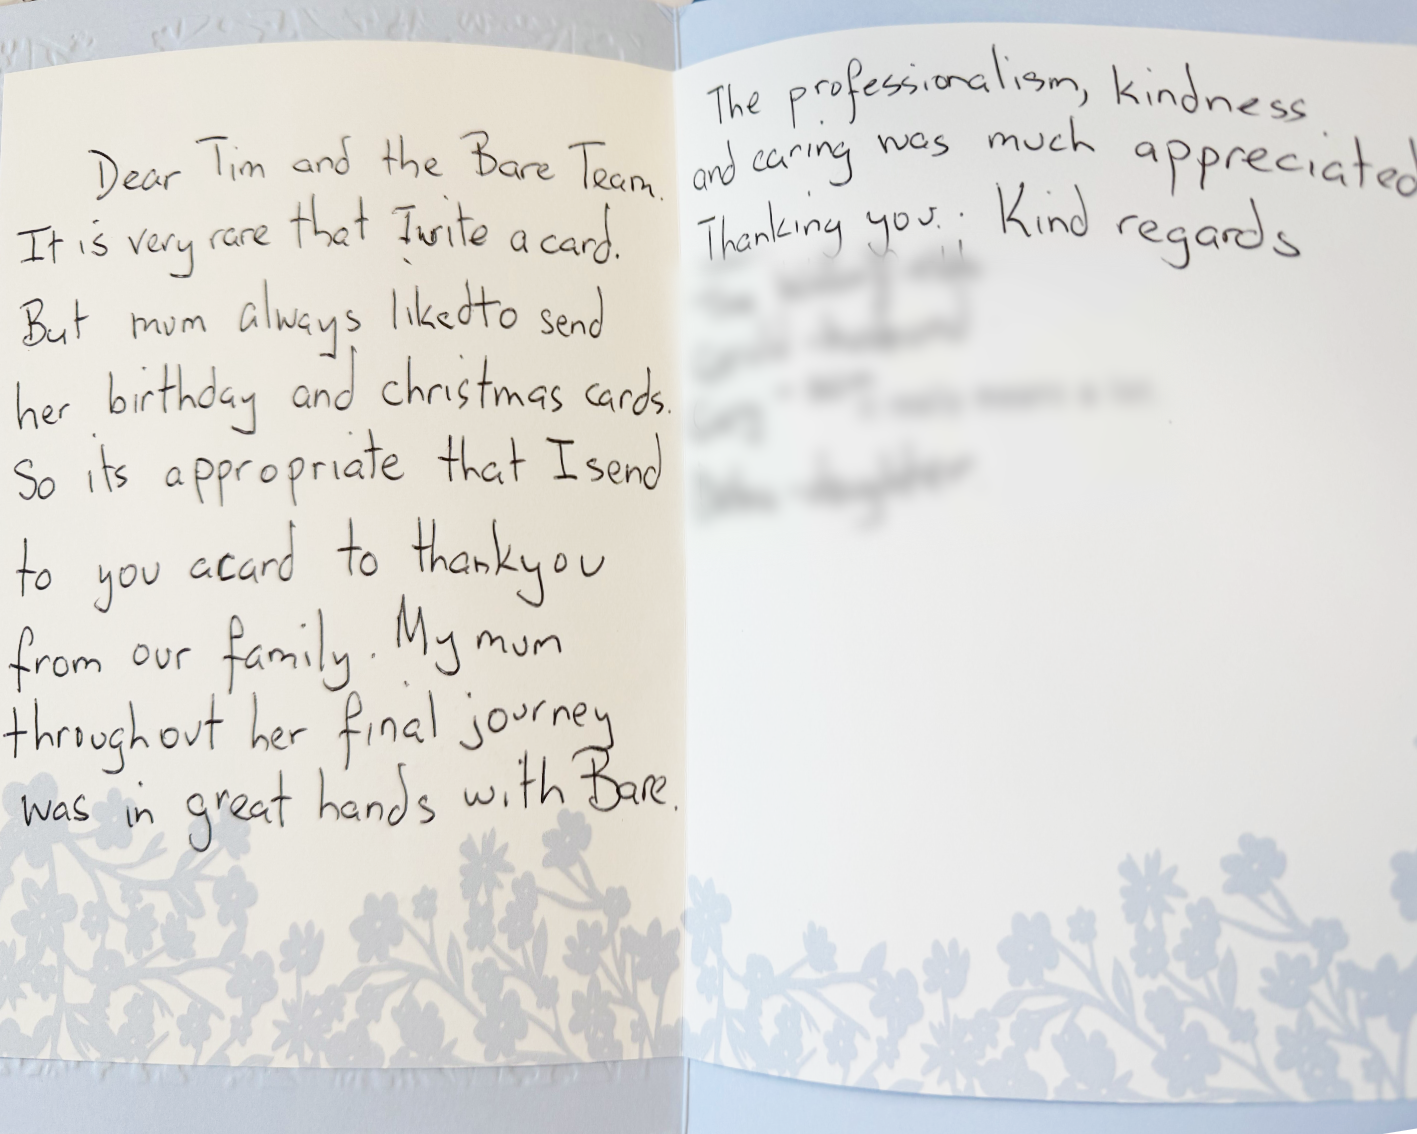 Dear Tim and the Bare Team.
It is very rare that I write a card.
But mum always liked to send
her birthday and christmas cards.
So its appropriate that I send
to you a card to thankyou
from our family. My mum
throughout her final journey
was in great hands with Bare.
The professionalism, kindness
and caring was much appreciated
Thanking you. Kind regards